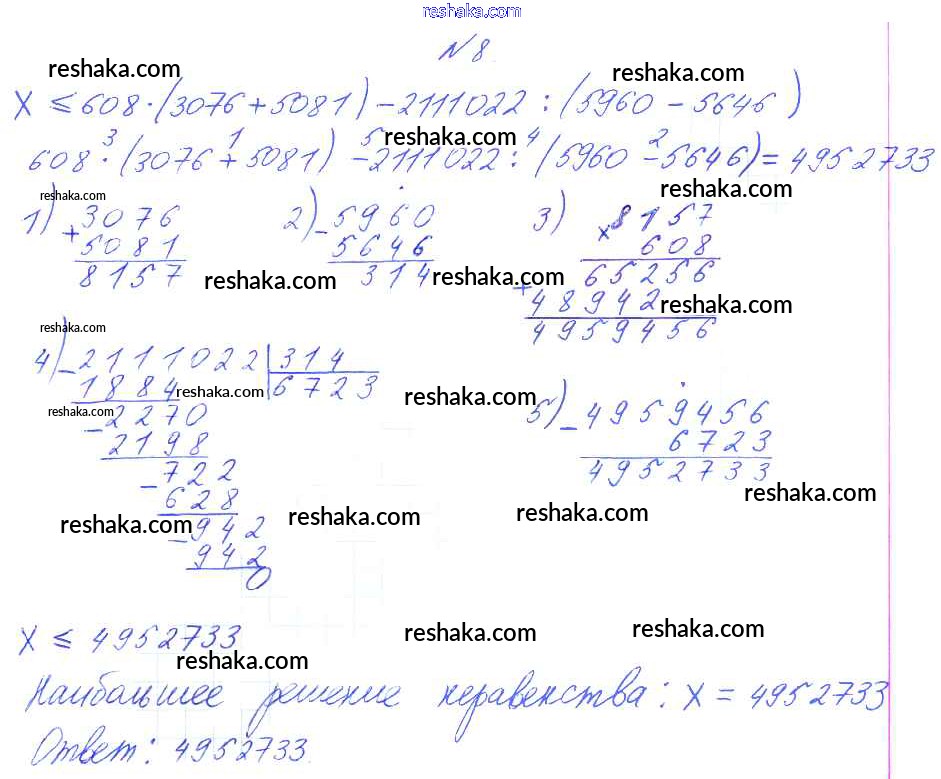 reshaka.com
№ 8.
reshaka.com reshaka.com
x ≤ 608 · (3076 + 5081) - 2111022 : (5960 - 5646)
reshaka.com
3 1 5 4 2
608 · (3076 + 5081) - 2111022 : (5960 - 5646) = 4952733
reshaka.com reshaka.com
1) + 3076 2) - 5960 3) × 8157
5081 5646 608
8157 314 65256
reshaka.com reshaka.com
+ 48942
reshaka.com
4959456
reshaka.com
4) - 2111022 | 314
1884 6723
reshaka.com reshaka.com
reshaka.com
- 2270 5) - 4959456
2198 6723
- 722 4952733
628
reshaka.com
reshaka.com reshaka.com reshaka.com
- 942
942
0
x ≤ 4952733
reshaka.com reshaka.com
reshaka.com
Наибольшее решение неравенства: x = 4952733
Ответ: 4952733.